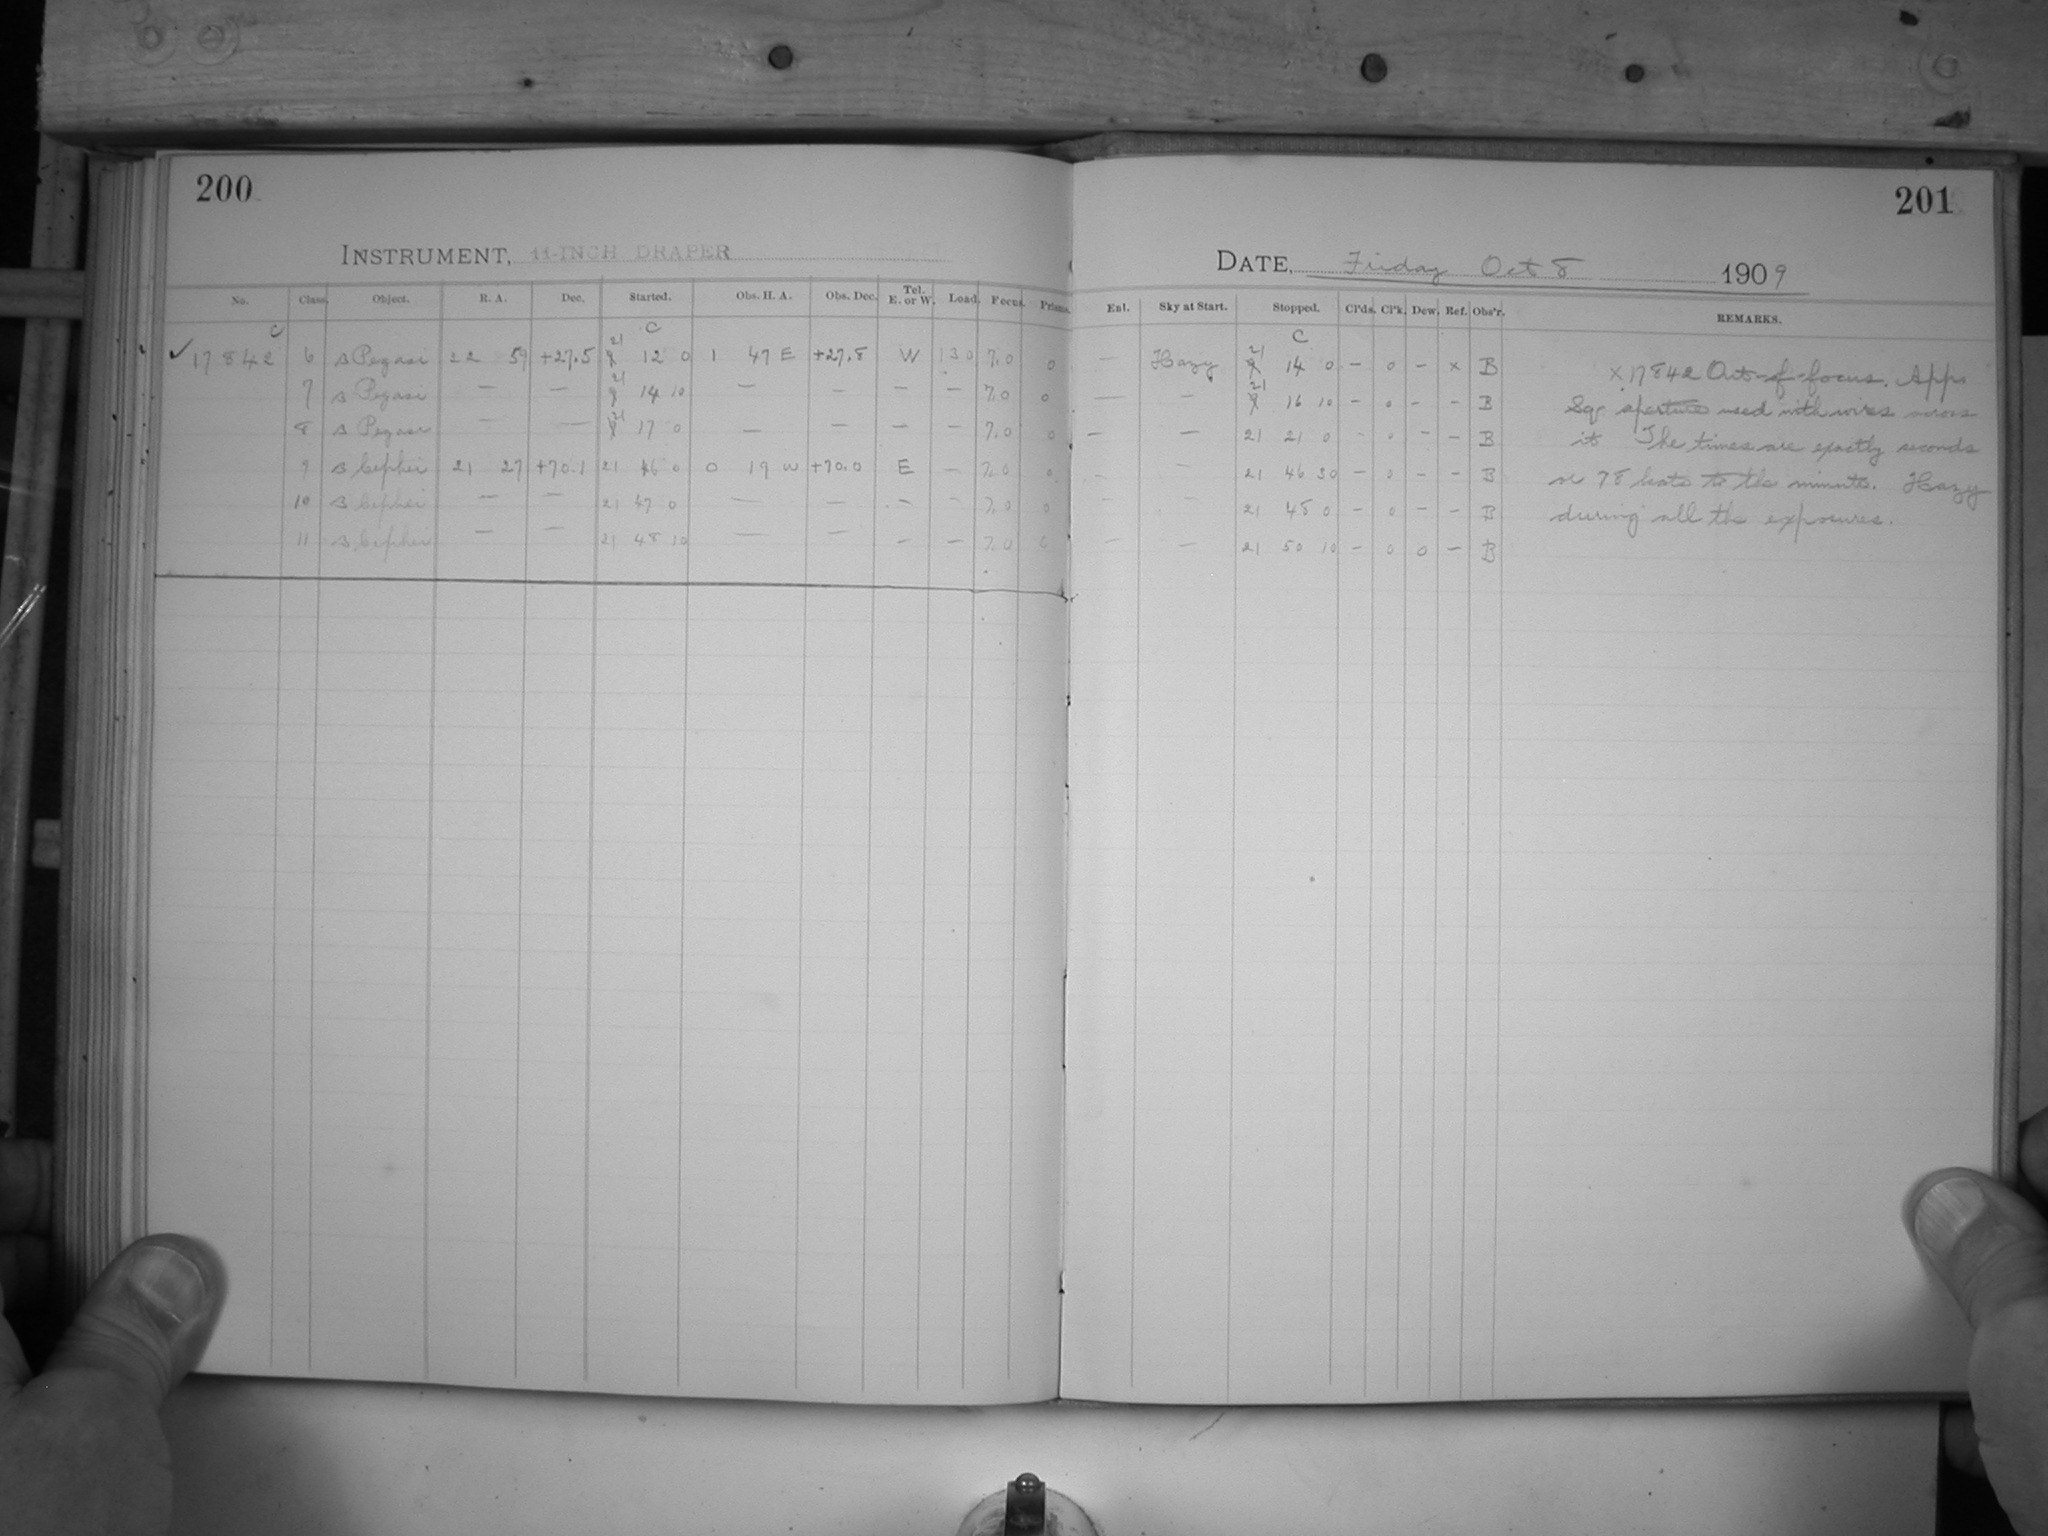 200
INSTRUMENT, 11-INCH DRAPER
No. Class. Object. R. A. Dec. Started. Obs. H. A. Obs. Dec. Tel. E. or W. Load. Focus. Prisms.
C C
✓ 17842 6 β Pegasi 22 59 +27.5 21 9 12 0 1 47 E +27.8 W 130 7.0 0
7 β Pegasi — — 21 9 14 10 — — — — 7.0 0
8 β Pegasi — — 21 9 17 0 — — — — 7.0 0
9 β Cephei 21 27 +70.1 21 46 0 0 19 W +70.0 E — 7.0 0
10 β Cephei — — 21 47 0 — — — — 7.0 0
11 β Cephei — — 21 48 10 — — — — 7.0 0
201
DATE, Friday Oct 8 1909
Enl. Sky at Start. Stopped. Cl'ds. Cl'k. Dew. Ref. Obs'r. REMARKS.
C
— Hazy 21 9 14 0 — 0 — x B
— — 21 9 16 10 — 0 — — B
— — 21 21 0 - 0 — — B
- - 21 46 30 — 0 — — B
- - 21 48 0 — 0 — — B
— — 21 50 10 — 0 0 — B
x 17842 Out-of-focus. App.
Sq. aperture used with wires across
it The times are exactly seconds
or 78 beats to the minute. Hazy
during all the exposures.